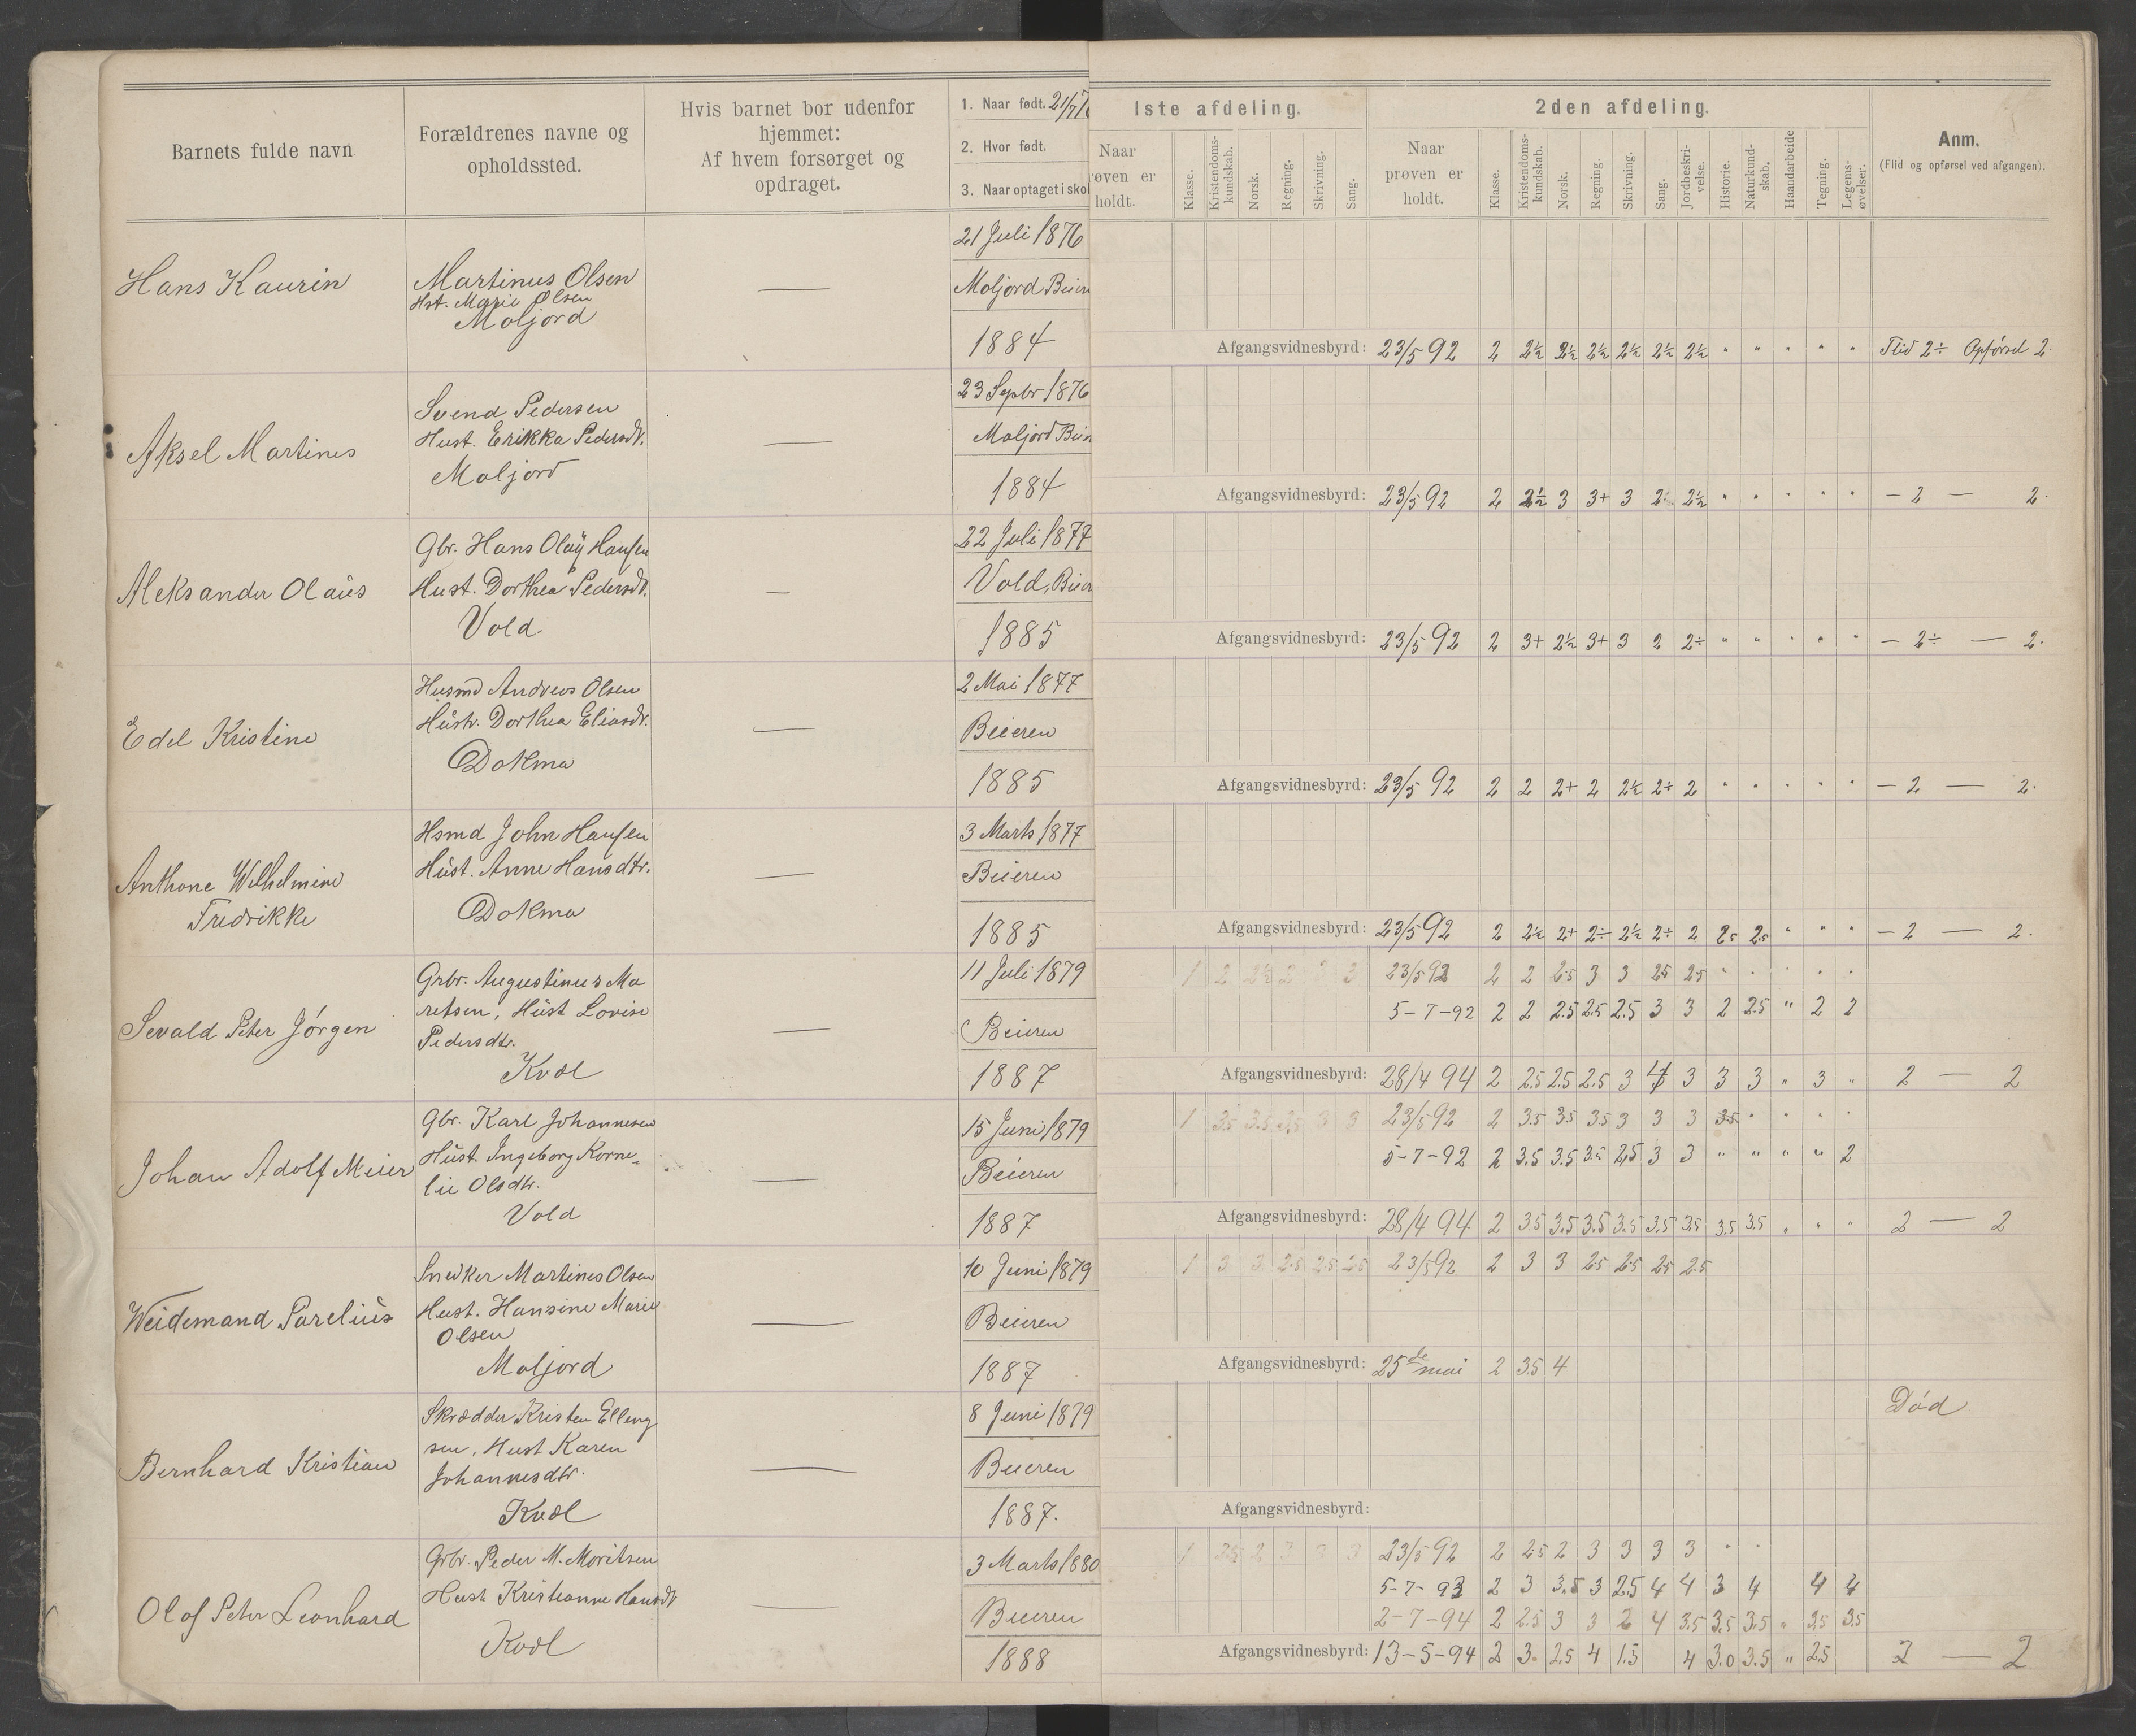 Barnets fulde navn
Forældrenes navne og
opholdssted.
Hvis barnet bor udenfor
hjemmet:
Af hvem forsørget og
opdraget.
1. Naar født. 21/7
2. Hvor født.
3. Naar optaget i skol
1ste afdeling.
Naar
røven er
holdt.
Klasse.
Kristendoms-
kundskab.
Norsk.
Regning.
Skrivning.
Sang.
2den afdeling.
Naar
prøven er
holdt.
Klasse.
Kristendoms-
kundskab.
Norsk.
Regning.
Skrivning.
Sang.
Jordbeskri-
velse.
Historie.
Naturkund-
skab.
Haandarbeide
Tegning.
Legems-
øvelser.
Anm.
(Flid og opførsel ved afgangen).
Hans Kaurin
Martinus Olsen
Hst. Marie Olsen
Moljord
—
21 Juli 1876
Moljord Beiern
1884
Afgangsvidnesbyrd: 23/5 92 2 2½ 2½ 2½ 2½ 2½ 2½ " " " " " Flid 2÷ Opførsel 2.
Aksel Martines
Svend Pedersen
Hust. Erikka Pedersdt.
Moljord
—
23 Septbr 1876
Moljord Bein
1884
Afgangsvidnesbyrd: 23/5 92 2 2½ 3 3+ 3 2 2½ " " " " " — 2 — 2.
Aleksander Olaus
Gbr. Hans Olaÿ Hansen
Hust. Dorthea Pedersdt.
Vold.
—
22 Juli 1877
Vold, Beier
1885
Afgangsvidnesbyrd: 23/5 92 2 3+ 2½ 3+ 3 2 2÷ " " " " " — 2÷ — 2.
Edel Kristine
Husmd Andreas Olsen
Hustr. Dorthea Eliasdt.
Dokmo
—
2 Mai 1877
Beieren
1885
Afgangsvidnesbyrd: 23/5 92 2 2 2+ 2 2½ 2÷ 2 " " " " " — 2 — 2.
Anthone Wilhelmine
Fredrikke
Hsmd John Hansen
Hust. Anne Hansdtr.
Dokmo
—
3 Marts 1877
Beieren
1885
Afgangsvidnesbyrd: 23/5 92 2 2½ 2+ 2÷ 2½ 2÷ 2 2.5 2.5 " " " — 2 — 2.
Sevald Peter Jørgen
Grbr. Augustinus Mo
retsen, Hust Lovise
Pedersdtr.
Kvæl
—
11 Juli 1879
Beieren
1887
1 2 2½ 2 3 3 23/5 92 2 2 2.5 3 3 25 2.5 " " " " "
5-7-92 2 2 2.5 2.5 2.5 3 3 2 2.5 " 2 2
Afgangsvidnesbyrd: 28/4 94 2 2.5 2.5 2.5 3 4 3 3 3 " 3 " 2 — 2
Johan Adolf Meier
Gbr. Karl Johannesen
Hust. Ingeborg Korne-
lie Olsdtr.
Vold
—
15 Juni 1879
Beieren
1887
1 3.5 3.5 3.5 3 3 23/5 92 2 3.5 3.5 3.5 3 3 3 3.5 " " " "
5-7-92 2 3.5 3.5 3.5 2.5 3 3 " " " " 2
Afgangsvidnesbyrd: 28/4 94 2 3.5 3.5 3.5 3.5 3.5 3.5 3.5 3.5 " " " 2 — 2
Weidemand Parelius
Snedker Martines Olsen
Hust. Hansine Marie
Olsen
Moljord
—
10 Juni 1879
Beieren
1887
1 3 3 2.5 2.5 2.5 23/5 92 2 3 3 2.5 2.5 2.5 2.5
Afgangsvidnesbyrd: 25de mai 2 3.5 4
Bernhard Kristian
Skrædder Kristen Elling
sen, Hust Karen
Johannesdtr.
Kvæl
—
8 Juni 1879
Beieren
1887.
Død
Afgangsvidnesbyrd:
Olof Peter Leonhard
Grbr. Peder M. Moritsen
Hust Kristianne Hansdt
Kvæl
—
3 Marts 1880
Beieren
1888
1 2.5 2 3 3 3 23/5 92 2 2.5 2 3 3 3 3 " "
5-7-93 2 3 3.5 3 2.5 4 4 3 4 4 4
2-7-94 2 2.5 3 3 2 4 3.5 3.5 3.5 " 3.5 3.5
Afgangsvidnesbyrd: 13-5-94 2 3. 2.5 4 1.5 4 3.0 3.5 " 2.5 2 — 2